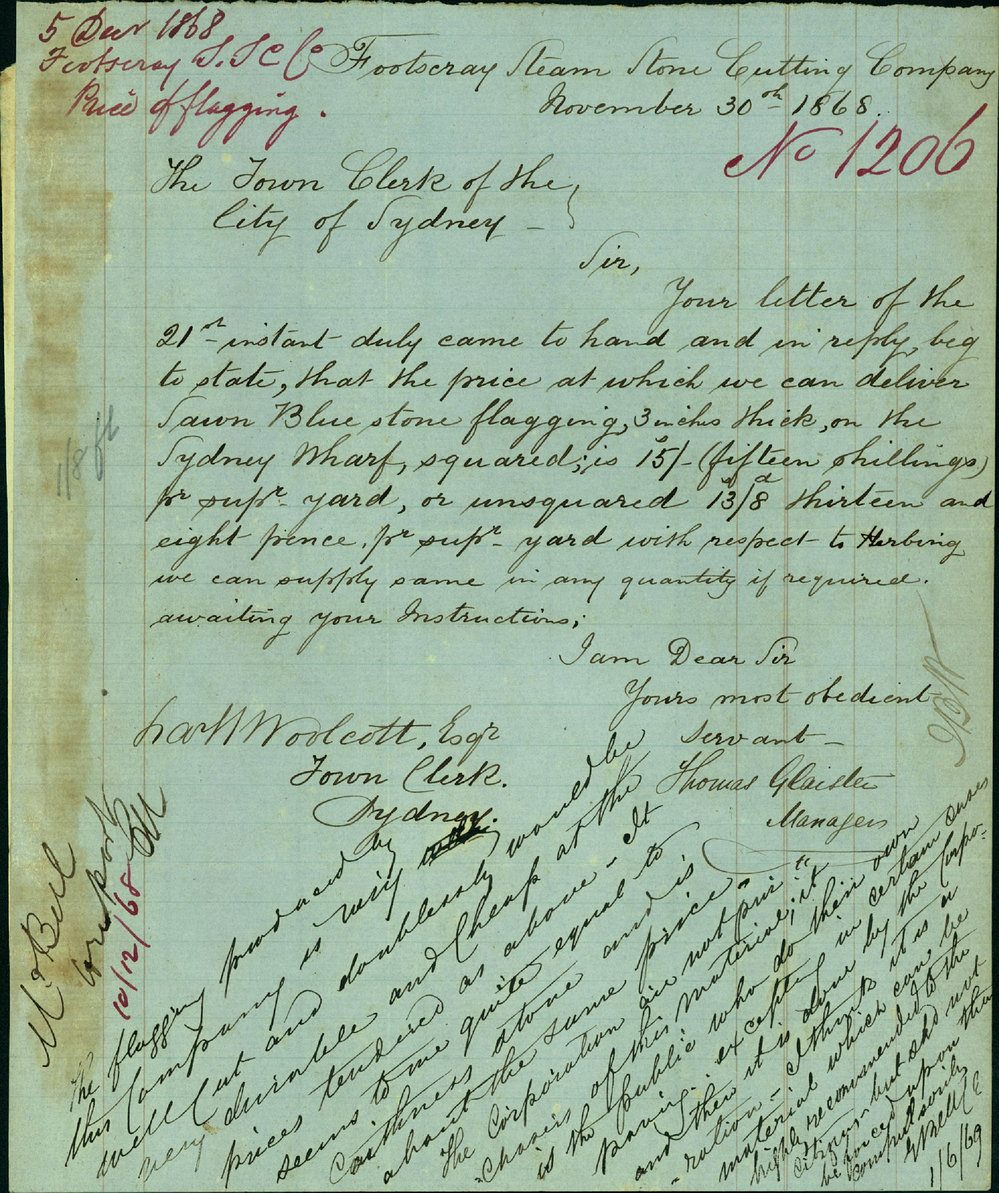 5 Decr 1868
Footscray S. S C Co
Price of flagging.
Footscray Steam Stone Cutting Company
November 30th 1868.
No 1206
The Town Clerk of the
City of Sydney -
Sir,
Your letter of the
21st instant duly came to hand and in reply, beg
to state, that the price at which we can deliver
Sawn Blue stone flagging, 3 inches thick, on the
Sydney Wharf, squared; is 15/- (fifteen shillings)
pr supr yard, or unsquared 13s/8d thirteen and
eight pence, pr supr yard with respect to Kerbing
we can supply same in any quantity if required.
awaiting your Instructions;
I am Dear Sir
Yours most obedient
Servant -
Thomas Glaister
Managers
Woolcott, Esqr
Town Clerk.
Sydney.
1/8 ft
Mr Bell
for report
10/12/68
The flagging produced by
this Company is very
well Cut and doublessly would be
very durable and Cheap at the
prices tendered as above - It
seems to me quite equal to
Caithness stone and is
about the same price -
The Corporation are not pur-
"chasers of this material; it
is the Public who do their own
paving; excepting in certain cases
and then it is done by the Corpo-
ration - I think it is a
material which can be
highly recommended to the
Citizens - but shd not
be forced upon them
compulsorily
Bell CE
1/6/69